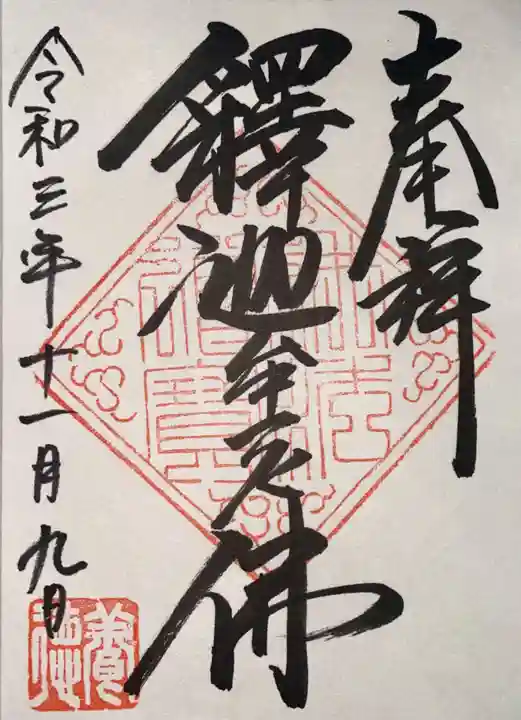 奉拝
釋迦牟尼佛
令和三年十一月九日
佛法
僧寶
養
徳